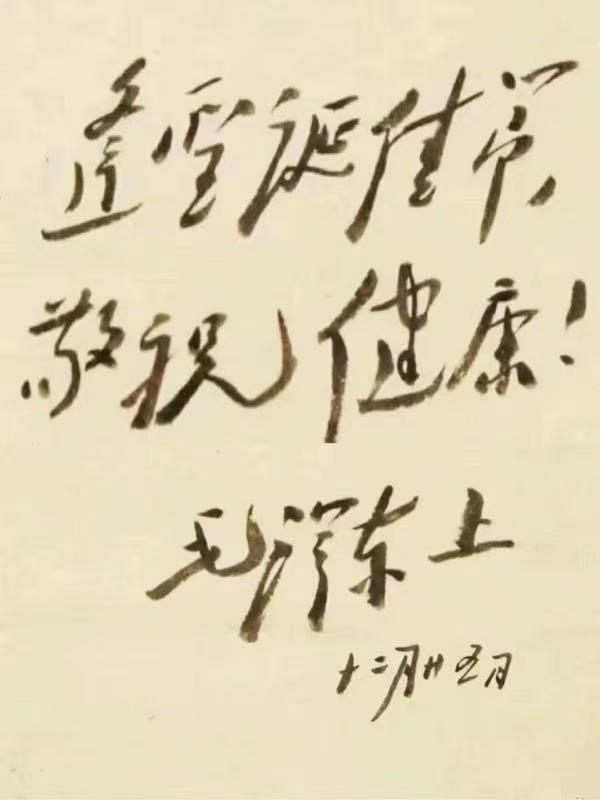 逢圣诞佳节,
敬祝健康!
毛泽东上
十二月廿五日